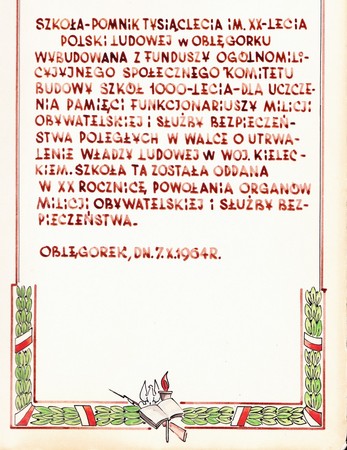 SZKOŁA-POMNIK TYSIĄCLECIA IM. XX-LECIA
POLSKI LUDOWEJ W OBLĘGORKU
WYBUDOWANA Z FUNDUSZY OGÓLNOMILI-
CYJYJNEGO SPOŁECZNEGO KOMITETU
BUDOWY SZKÓŁ 1000-LECIA-DLA UCZCZE-
NIA PAMIĘCI FUNKCJONARIUSZY MILICJI
OBYWATELSKIEJ I SŁUŻBY BEZPIECZEŃ-
STWA POLEGŁYCH W WALCE O UTRWA-
LENIE WŁADZY LUDOWEJ W WOJ. KIELEC-
KIEM. SZKOŁA TA ZOSTAŁA ODDANA
W XX ROCZNICĘ, POWOŁANIA ORGANÓW
MILICJI OBYWATELSKIEJ I SŁUŻBY BEZ-
PIECZEŃSTWA.
OBLĘGOREK, DN. 7.X.1964R.